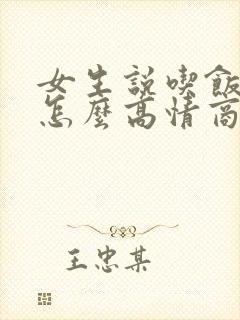 女生説喫飯
怎麼高情商
王忠某